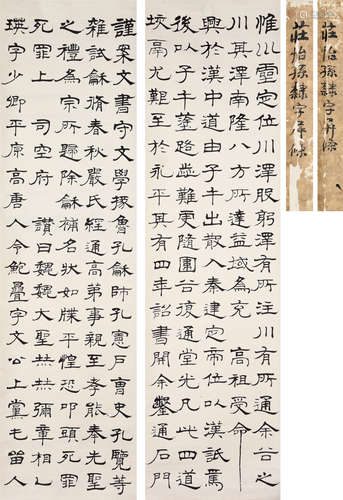 莊怡孫隸字屏條
莊怡孫隸字屏條
惟川靈定位川澤股躬澤有所注川有所通余谷之
川其澤南隆八方所達益域為充 高祖受命
興於漢中道由子午出散入秦建定帝位以漢詆焉
後以子午蹙路澀難更隨圍谷復通堂光凡此四道
垓鬲尤艱至於永平其有四年詔書開余鑿通石門
謹案文書守文學掾魯孔龢師孔憲戶曹史孔覽等
雜試龢脩春秋嚴氏經通高第事親至孝能奉先聖
之禮為宗所歸除龢補名狀如牒平惶恐叩頭死罪
死罪上 司空府 讚曰魏魏大聖赫赫彌章相乙
瑛字少卿平原高唐人令鮑疊字文公上黨屯留人